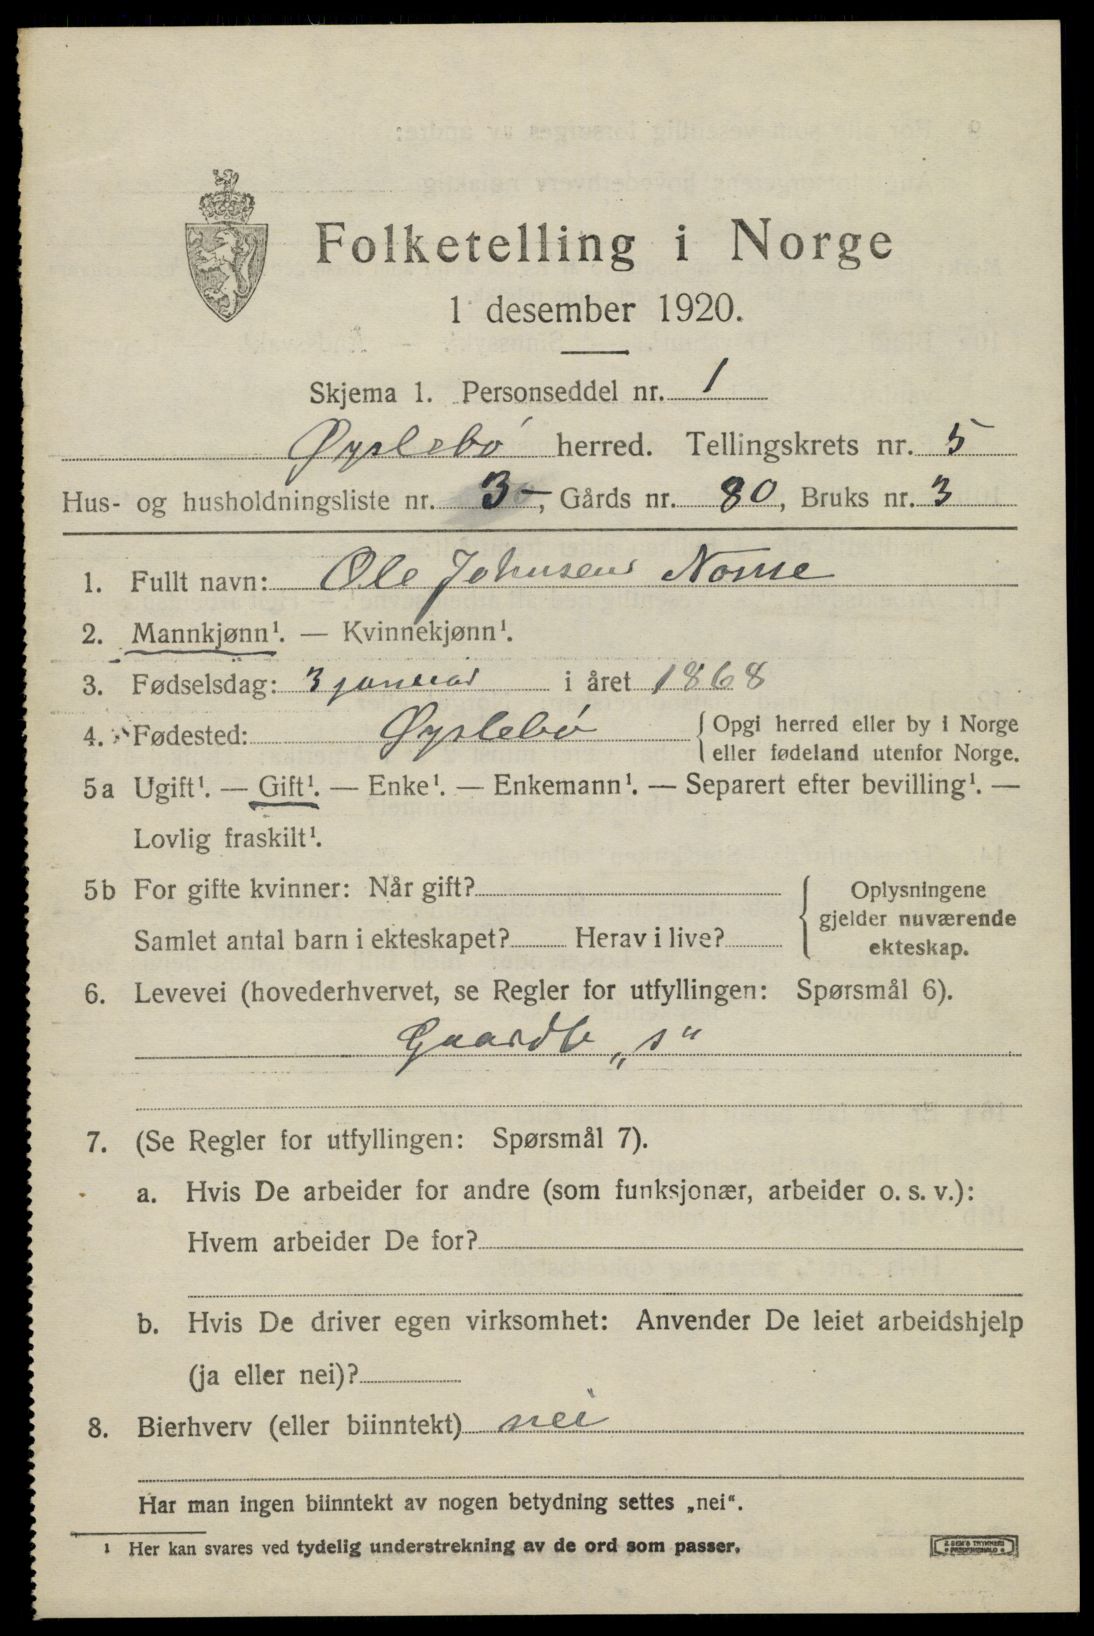 Folketelling i Norge
1 desember 1920.
Skjema 1. Personseddel nr. 1
Øyslebø herred. Tellingskrets nr. 5
Hus- og husholdningsliste nr. 3-, Gårds nr. 80, Bruks nr. 3
1. Fullt navn: Ole Johnsen Nome
2. Mannkjønn¹. — Kvinnekjønn¹.
3. Fødselsdag: 3 januar i året 1868
4. Fødested: Øyslebø { Opgi herred eller by i Norge
eller fødeland utenfor Norge.
5a Ugift¹. — Gift¹. — Enke¹. — Enkemann¹. — Separert efter bevilling¹. —
Lovlig fraskilt¹.
5b For gifte kvinner: Når gift?
Samlet antal barn i ekteskapet? Herav i live?
Oplysningene
gjelder nuværende
ekteskap.
6. Levevei (hovederhvervet, se Regler for utfyllingen: Spørsmål 6).
Gaardb „s“
7. (Se Regler for utfyllingen: Spørsmål 7).
a. Hvis De arbeider for andre (som funksjonær, arbeider o. s. v.):
Hvem arbeider De for?
b. Hvis De driver egen virksomhet: Anvender De leiet arbeidshjelp
(ja eller nei)?
8. Bierhverv (eller biinntekt) nei
Har man ingen biinntekt av nogen betydning settes „nei“.
¹ Her kan svares ved tydelig understrekning av de ord som passer.